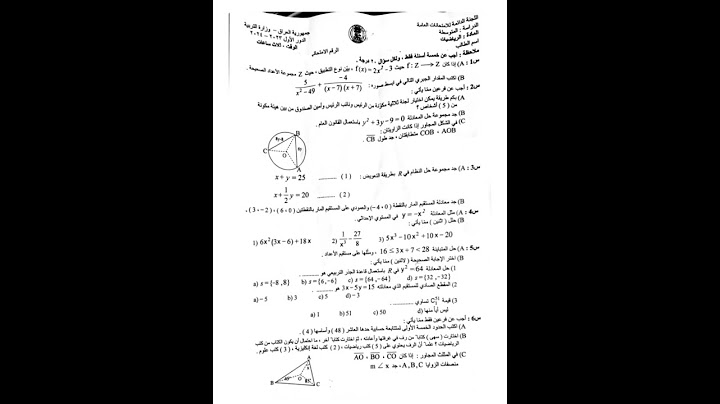 اللجنة الدائمة للامتحانات العامة
الدراسة : المتوسطة
المادة : الرياضيات
اسم الطالب
جمهورية العراق - وزارة التربية
الدور الأول ٢٠٢٣ - ٢٠٢٤
الوقت : ثلاث ساعات
الرقم الامتحاني
ملاحظة : أجب عن خمسة أسئلة فقط ، ولكل سؤال ٢٠ درجة .
س1 : A) إذا كان f : Z → Z حيث f(x) = 2x² - 3 ، بيّن نوع التطبيق ، حيث Z مجموعة الأعداد الصحيحة .
B) اكتب المقدار الجبري التالي في ابسط صورة : 5/(x² - 49) + -4/((x - 7)(x + 7))
س2 : أجب عن فرعين مما يأتي :
A) بكم طريقة يمكن اختيار لجنة ثلاثية مكوّنة من الرئيس ونائب الرئيس وأمين الصندوق من بين هيئة مكونة
من ( 5 ) أشخاص ؟
B) جد مجموعة حل المعادلة y² + 3y - 9 = 0 باستعمال القانون العام .
C) في الشكل المجاور إذا كانت الزاويتان : AOB ، COB
متطابقتان ، جد طول CB .
B
C
O
A
س3 : A) جد مجموعة حل النظام في R بطريقة التعويض :
x + y = 25 ........ ( 1 )
x + 1/2 y = 20 ........ ( 2 )
B) جد معادلة المستقيم المار بالنقطة ( 0 ، 4- ) والعمودي على المستقيم المار بالنقطتين ( 0 ، 6 ) ، ( 2- ، 3 ) .
س4 : A) مثّل المعادلة y = -x² في المستوي الإحداثي .
B) حلّل ( اثنين ) مما يأتي :
1) 6x²(3x - 6) + 18x 2) 1/x³ - 27/8 3) 5x³ - 10x² + 10x - 20
س5 : A) حل المتباينة 16 ≤ 3x + 7 < 28 ، ومثّلها على مستقيم الأعداد .
B) اختر الإجابة الصحيحة ( لاثنين ) مما يأتي :
1) حل المعادلة y² = 64 في R باستعمال قاعدة الجذر التربيعي هو ........
a) s = {-8 , 8} b) s = {6 , -6} c) s = {64 , -64} d) s = {32 , -32}
2) المقطع الصادي للمستقيم الذي معادلته 3x - 5y = 15 هو ........
a) - 5 b) 3 c) 5 d) - 3
3) قيمة C₁⁵¹ تساوي ........
a) 1 b) 51 c) 50 d) ليس أياً منها
س6 : أجب عن فرعين فقط مما يأتي :
A) اكتب الحدود الخمسة الأولى لمتتابعة حسابية حدها العاشر ( 48 ) وأساسها ( 4 ) .
B) اختارت ( سهى ) كتاباً من رف في غرفتها وأعادته ، ثم اختارت كتاباً آخر ، ما احتمال أن يكون الكتاب من كتب
الرياضيات ؟ علماً أنّ الرف يحتوي على ( 5 ) كتب رياضيات ، ( 2 ) كتب لغة إنكليزية ، ( 3 ) كتب علوم .
C) في المثلث المجاور : إذا كان AO ، BO ، CO
منصفات الزوايا A , B , C ، جد m∠x
A
O
B
C